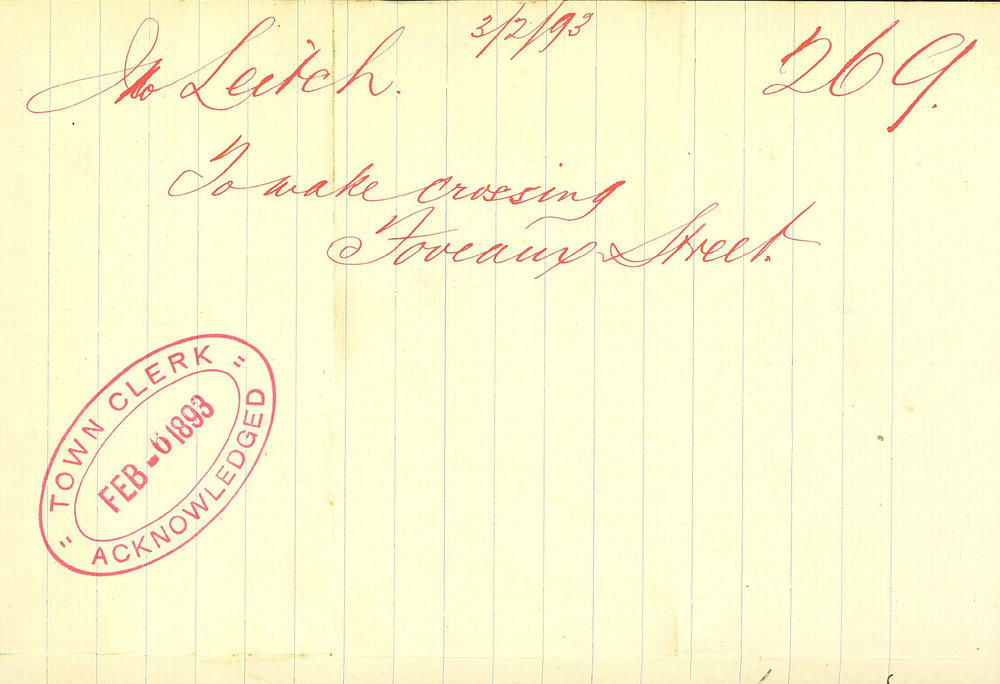 Jno Leitch. 3/2/93 269.
To make crossing
Foveaux Street.
" TOWN CLERK "
FEB - 6 1893
ACKNOWLEDGED